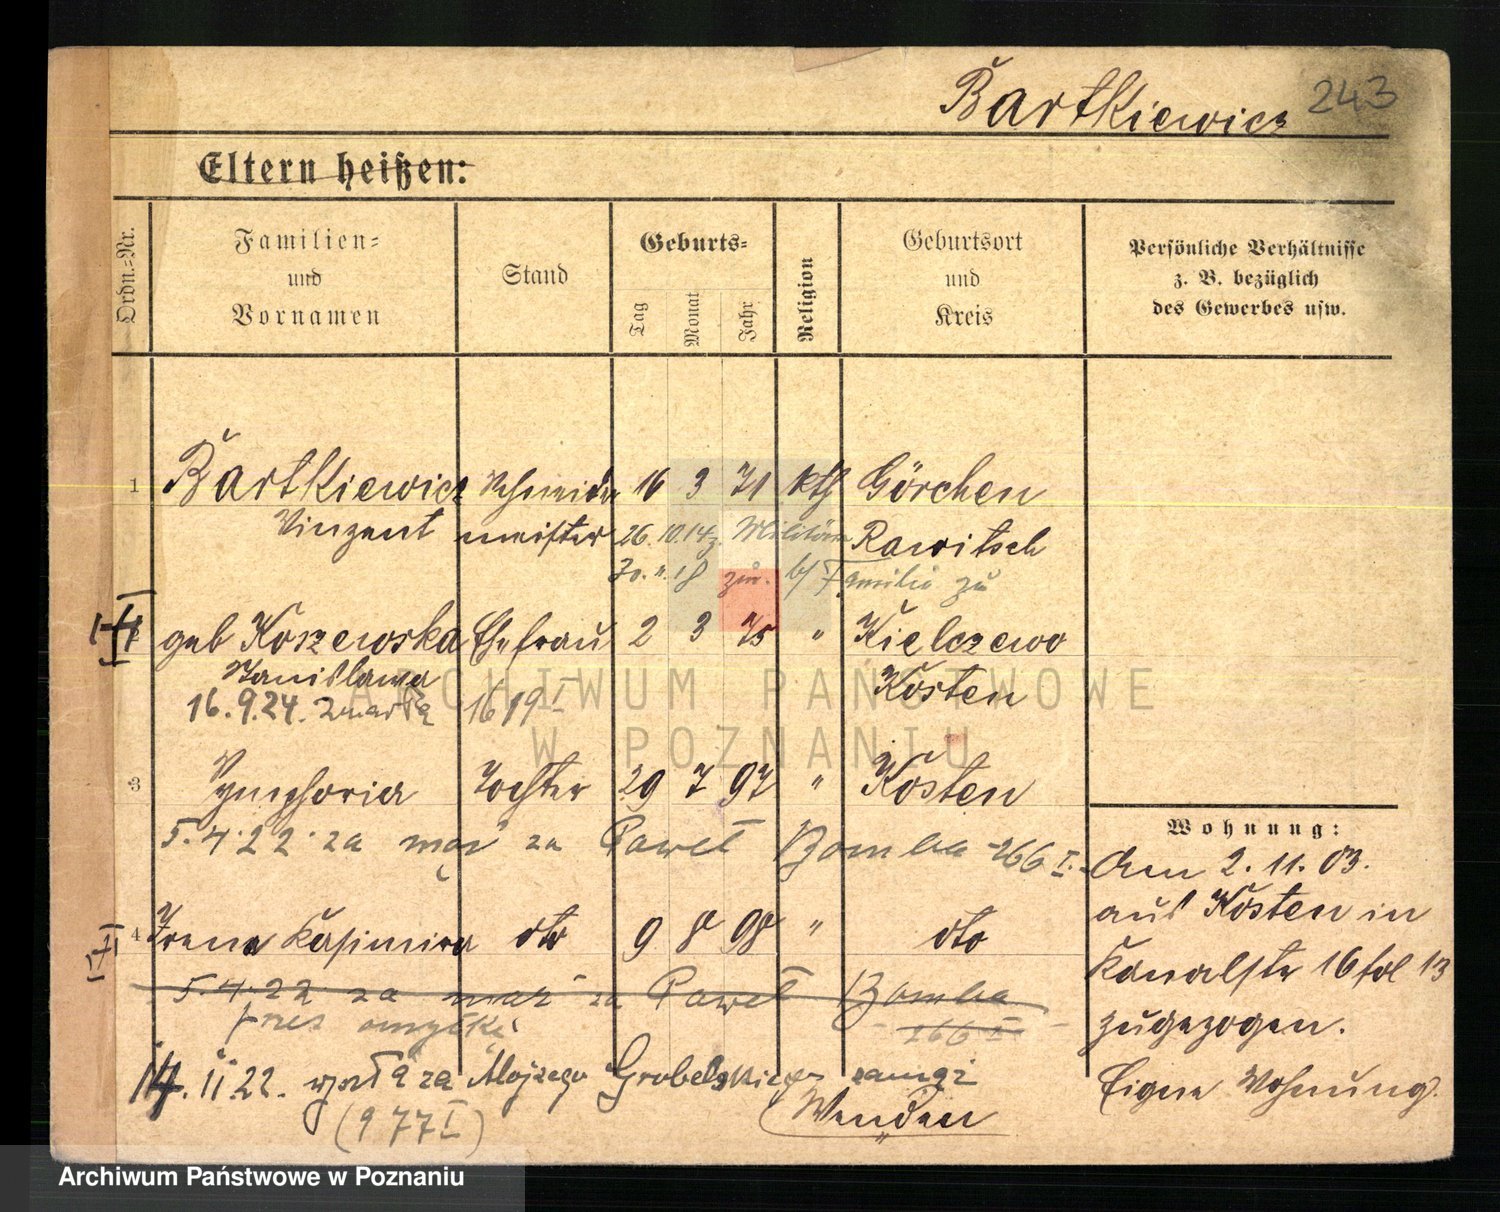 Bartkiewicz 243
Eltern heißen:
Ordn.-Nr.
Familien-
und
Vornamen
Stand
Geburts-
Tag
Monat
Jahr
Religion
Geburtsort
und
Kreis
Persönliche Verhältnisse
z. B. bezüglich
des Gewerbes usw.
1 Bartkiewicz Schneider 16 3 71 kth Görchen
Vinzent meister 26.10.14 z. Militär Rawitsch
30. 11. 18 zur. b/ Familie zu
geb Koszewska Ehefrau 2 3 75 " Kielczewo
Stanislawa Kosten
16.9.24. zmarła 1619 I
3 Symphoria Tochter 29 7 97 " Kosten
5.4.22. za mąż za Paweł Bomba 266 I.
4 Irena Kasimira dto 9 8 98 " dto
5.4.22 za mąż za Paweł Bomba
przez omyłkę 266 I
14. 11 22. wyszła za Alojzego Grobelskiego zamąż
(977 I) Wenden
Wohnung:
Am 2. 11. 03.
aus Kosten in
Kanalstr 16 fol 13
zugezogen.
Eigne Wohnung.
ARCHIWUM PAŃSTWOWE
W POZNANIU
Archiwum Państwowe w Poznaniu